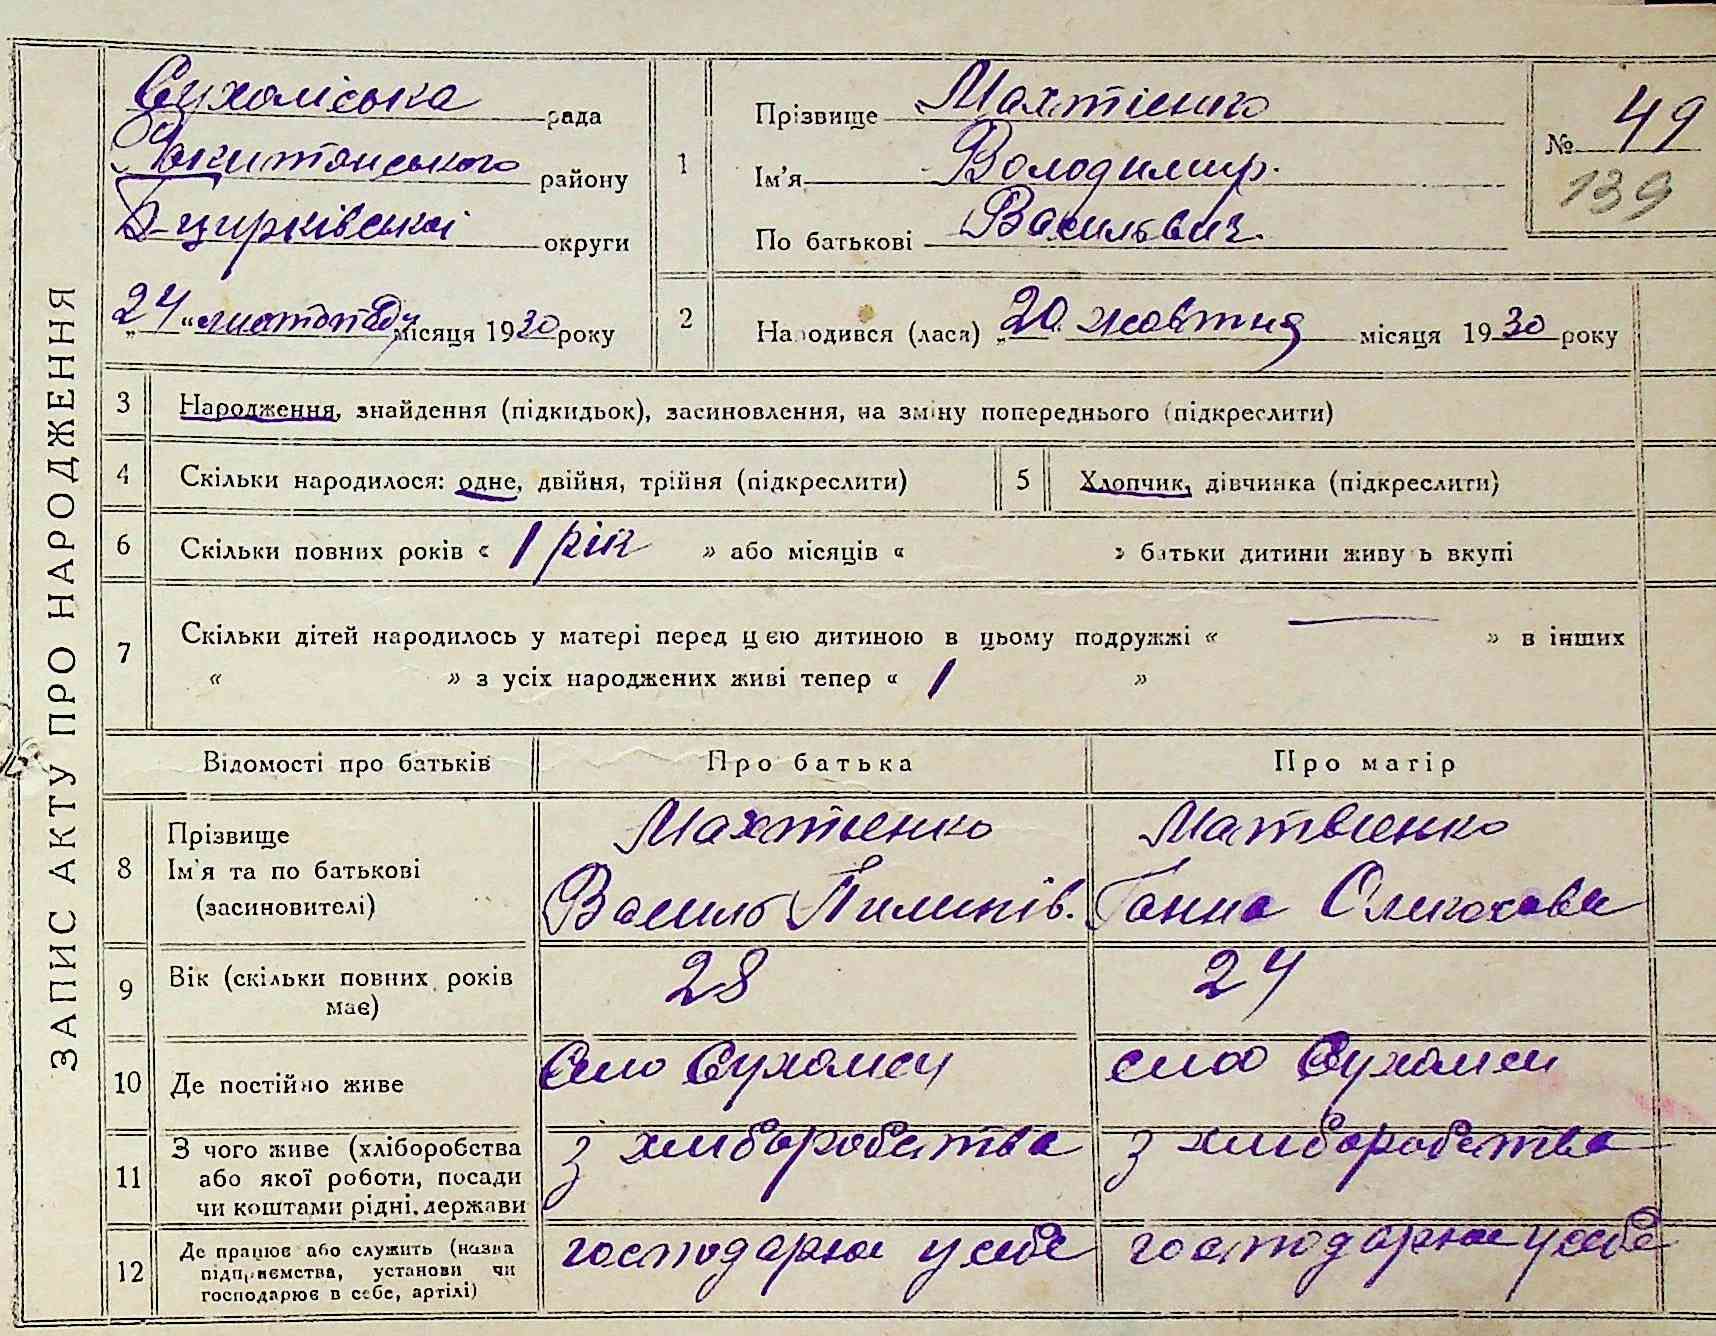 ЗАПИС АКТУ ПРО НАРОДЖЕННЯ
Сухоліська рада
Рокитянського району
Б-церківської округи
„24“ листопаду місяця 1930 року
1
Прізвище Махтієнко
Ім'я Володимир.
По батькові Васильвич.
№ 49
139
2
Народився (лася) „20. жовтня місяця 1930 року
3
Народження, знайдення (підкидьок), засиновлення, на зміну попереднього (підкреслити)
4
Скільки народилося: одне, двійня, трійня (підкреслити)
5
Хлопчик, дівчинка (підкреслити)
6
Скільки повних років « 1 рік » або місяців « » батьки дитини живуть вкупі
7
Скільки дітей народилось у матері перед цією дитиною в цьому подружжі « — » в інших
« » з усіх народжених живі тепер « 1 »
Відомості про батьків
Про батька
Про матір
8
Прізвище
Ім'я та по батькові
(засиновителі)
Махтієнко
Василь Пилипів.
Матвієнко
Ганна
9
Вік (скільки повних років
має)
28
24
10
Де постійно живе
село Сухоліси
село Сухоліси
11
З чого живе (хліборобства
або якої роботи, посади
чи коштами рідні, держави
з хліборобства
з хліборобства
12
Де працює або служить (назва
підприємства, установи чи
господарює в себе, артілі)
господарює у себе
господарює у себе